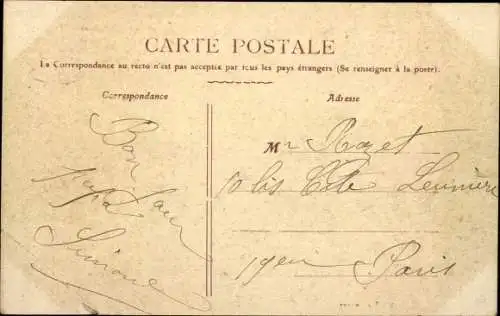 CARTE POSTALE
La Correspondance au recto n'est pas acceptée par tous les pays étrangers (Se renseigner à la poste).
Correspondance
Adresse
Bon Jour
papa
Simone
Mr Rozet
bis Cité
Paris